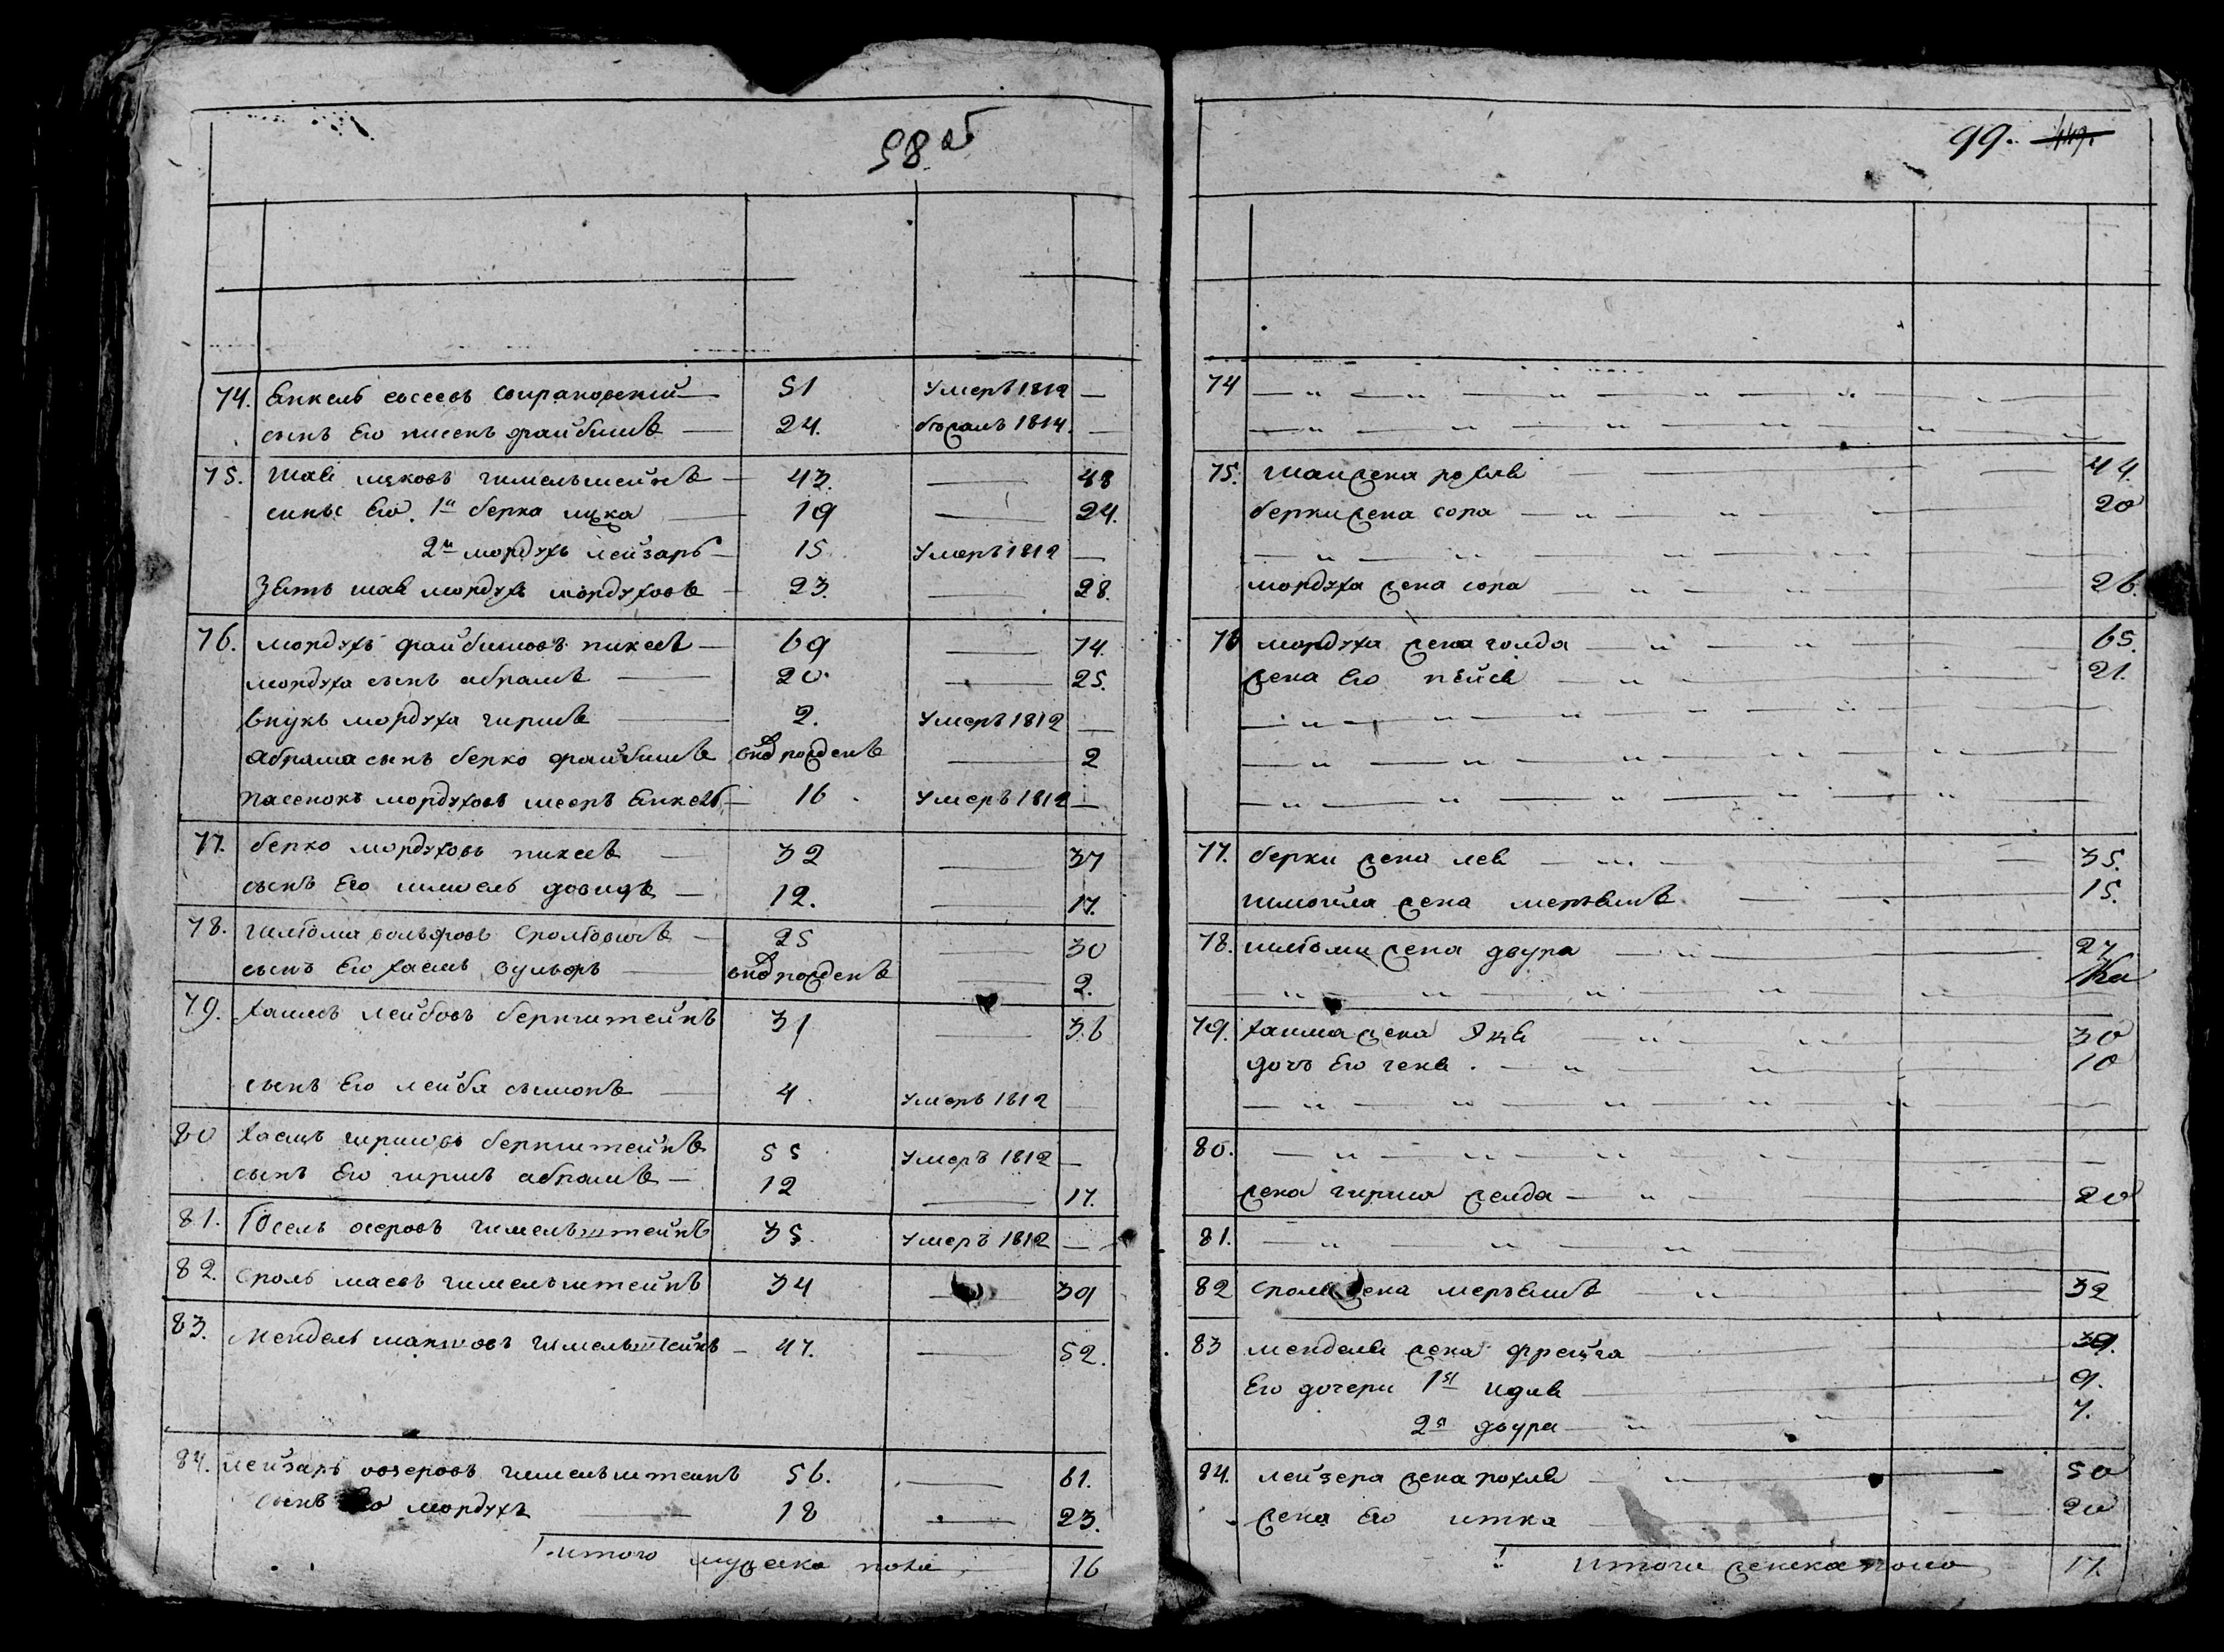 98 об
74. Енкель евсеевъ 51 Умеръ 1812 —
сынъ Его писекъ файбишъ — 24. бѣжалъ 1814. —
75. Шая ицковъ гимельштейнъ — 43. — 48
сыны Его. 1й берка ицка — 19 — 24.
2й мордухъ лейзаръ — 15 Умеръ 1812 —
Зять шаи мордухъ мордуховъ — 23. — 28.
76. мордухъ файбишовъ пикелъ — 69 — 74.
мордуха сынъ абрамъ — 20. — 25.
внукъ мордуха гиршъ — 2. Умеръ 1812 —
абрама сынъ берко файбишъ вновьрожденъ — 2
пасенокъ мордуховъ мееръ Енкель — 16 Умеръ 1812 —
77. берко мордуховъ пикелъ — 32 — 37
сынъ Его шмоель довидъ — 12. — 17.
78. шлиома вольфовъ сролиовичъ — 25 — 30
сынъ Его хаимъ вульфъ — вновьрожденъ — 2.
79. хаимъ лейбовъ бернштейнъ 31 — 36
сынъ Его лейба сымонъ — 4. Умеръ 1812 —
80 хаимъ гиршовъ бернштейнъ 55 Умеръ 1812 —
сынъ Его гиршъ абрамъ — 12 — 17.
81. Іосель осеровъ гимельштейнъ 35. Умеръ 1812 —
82. сроль маевъ гимельштейнъ 34 — 39
83. Мендель манисовъ гимельштейнъ — 47. — 52.
84. лейзаръ возеровъ гимельштейнъ 56. — 61.
сынъ Его мордухъ — 18 — 23.
итого мужеска пола — 16
99.
74
75. шаи жена рохля — 44.
берки жена сора — 20
мордуха жена сора — 26.
76 мордуха жена голда — 65.
жена Его пейся — 21.
77. берки жена лея — 35.
шмойла жена мерьямъ — 15.
78. шлиомы жена двура — 27
79. хаима жена Эця — 30
дочь Его геня. — 10
80. —
жена гирша желда — 20
81. —
82 сроля жена мерьямъ — 32
83 менделя жена фрейда — 39.
Его дочери 1я идля — 9.
2я двура — 7.
84. лейзера жена рохля — 50
жена Его итка — 20
итого женска пола 17.